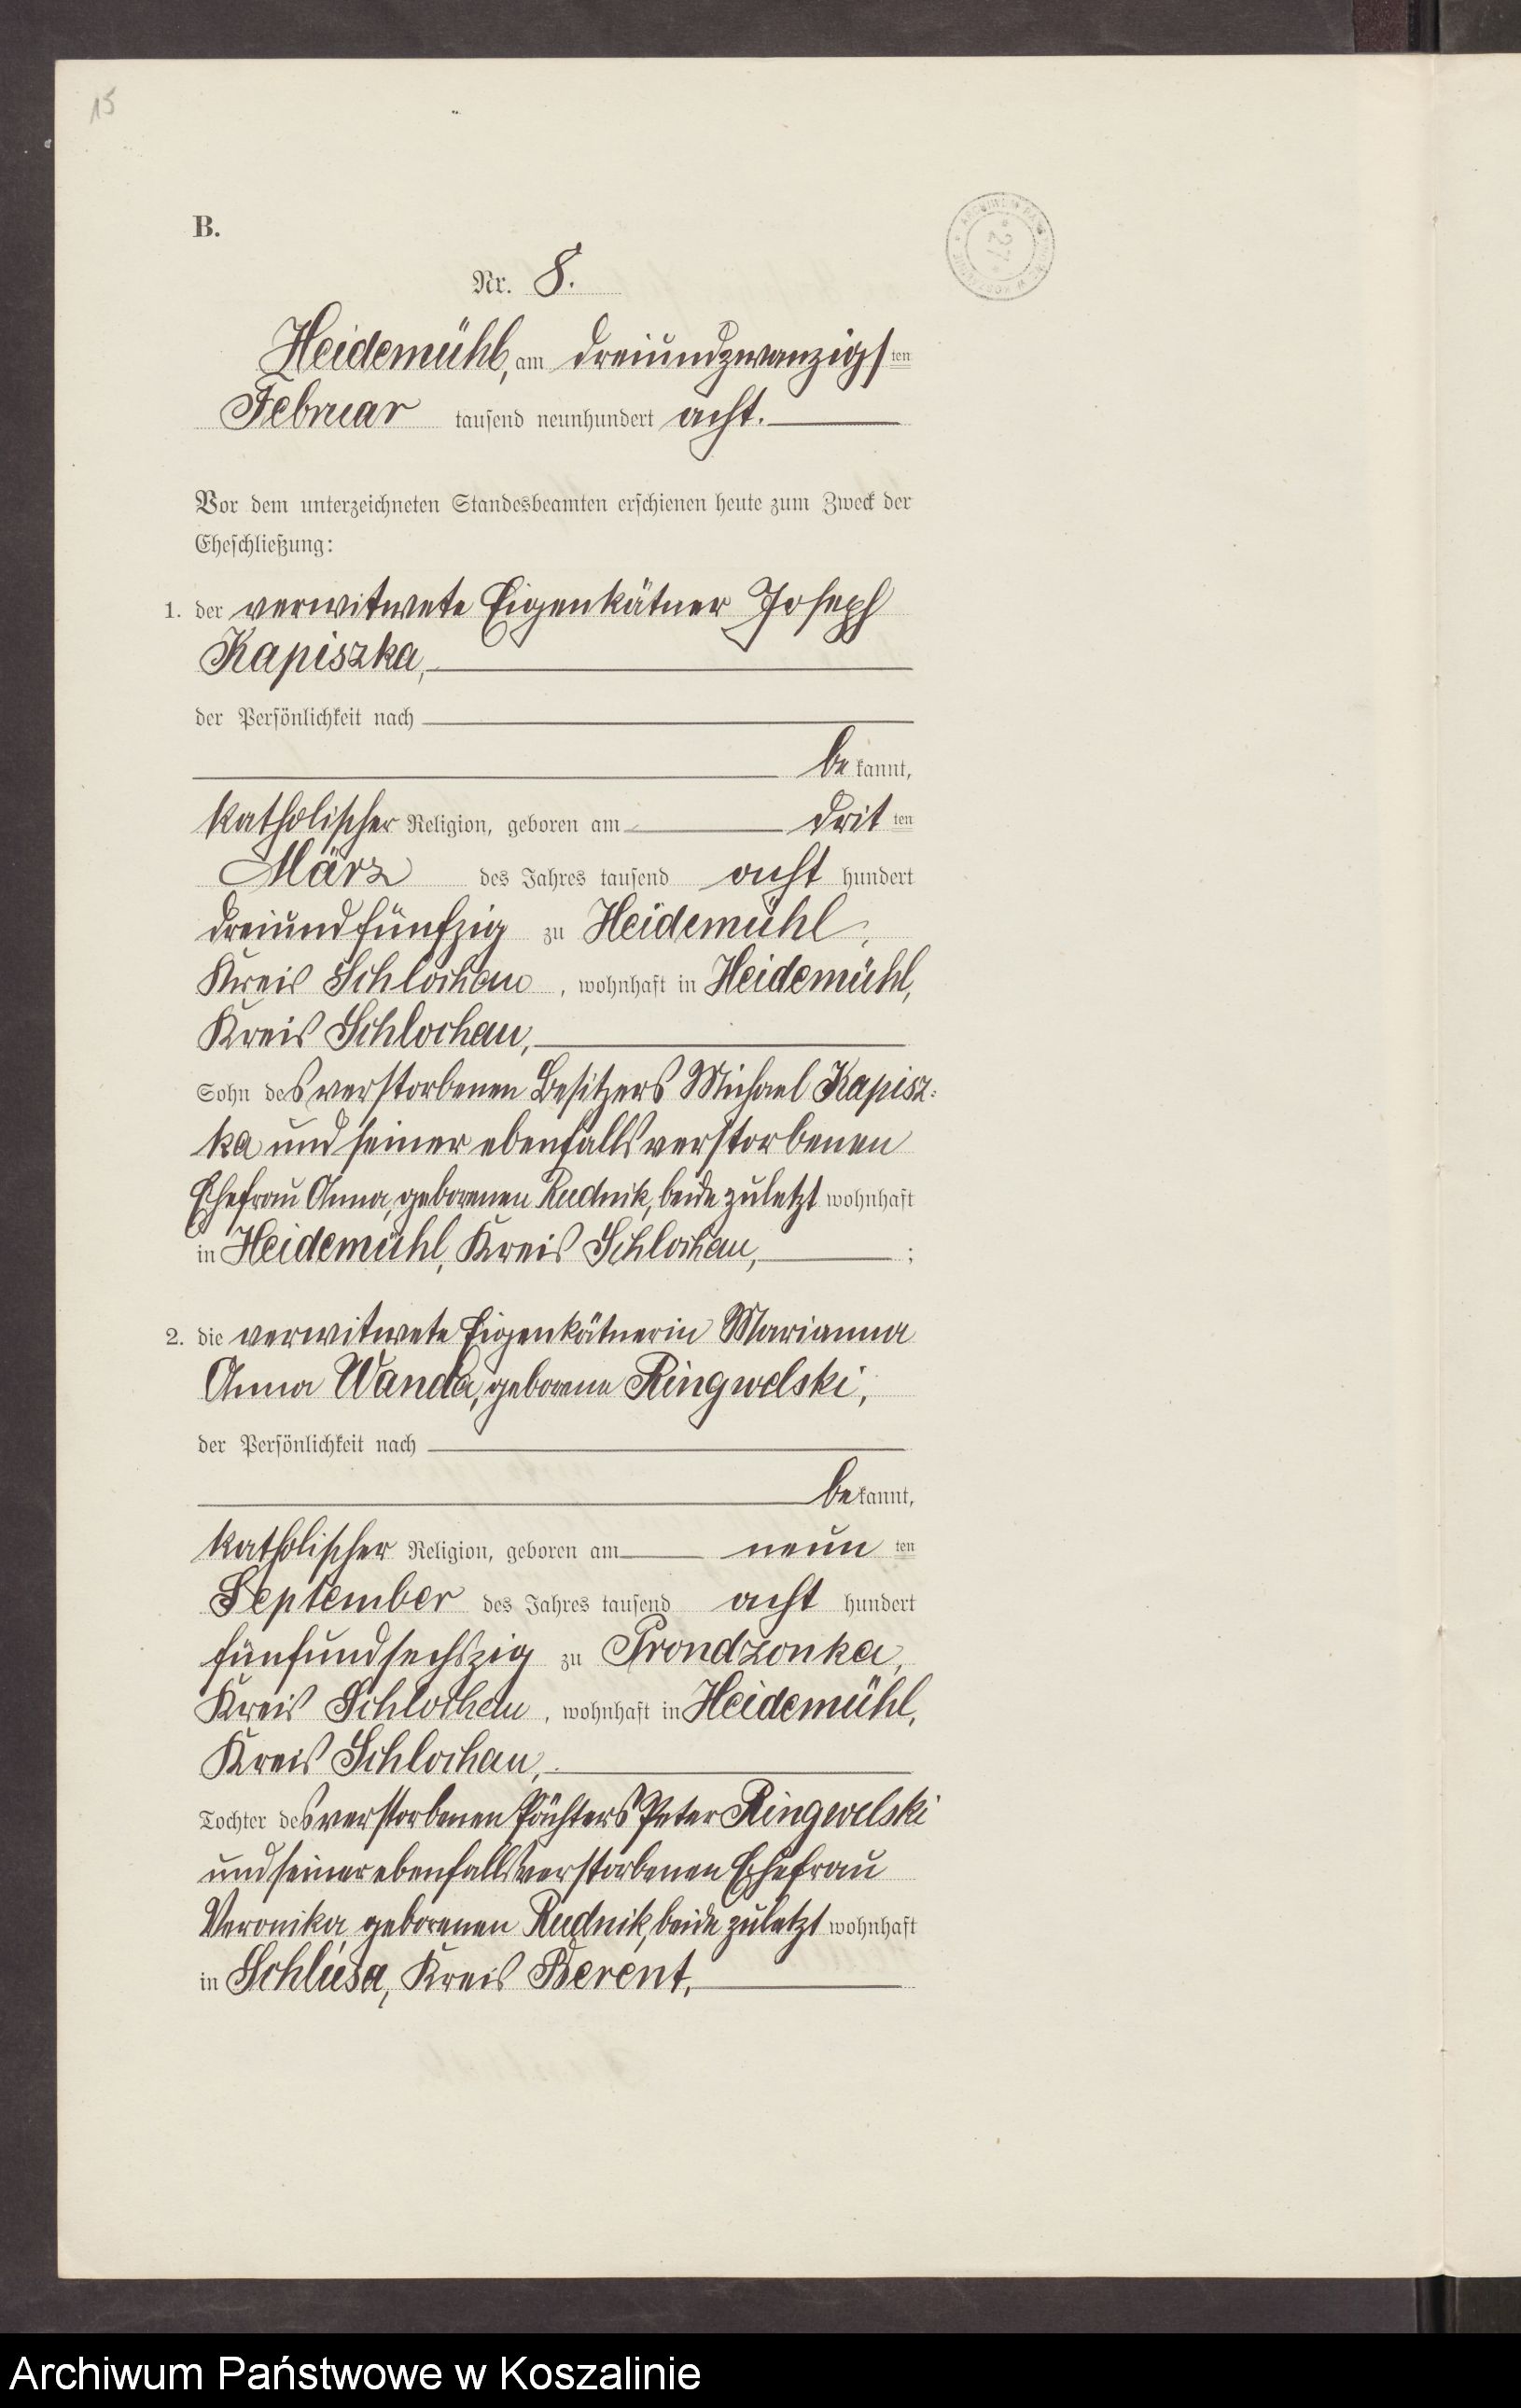 15
B.
Nr. 8.
Heidemühl, am dreiundzwanzigsten
Februar tausend neunhundert acht.
Vor dem unterzeichneten Standesbeamten erschienen heute zum Zweck der
Eheschließung:
1. der verwitwete Eigenkätner Joseph
Kapiszka,
der Persönlichkeit nach
bekannt,
katholischer Religion, geboren am dritten
März des Jahres tausend acht hundert
dreiundfünfzig zu Heidemühl,
Kreis Schlochau, wohnhaft in Heidemühl,
Kreis Schlochau,
Sohn des verstorbenen Besitzers Michael Kapisz=
ka und seiner ebenfalls verstorbenen
Ehefrau Anna, geborenen Rudnik, beide zuletzt wohnhaft
in Heidemühl, Kreis Schlochau, ;
2. die verwitwete Eigenkätnerin Marianna
Anna Wanda, geborene Ringwelski,
der Persönlichkeit nach
bekannt,
katholischer Religion, geboren am neunten
September des Jahres tausend acht hundert
fünfundsechszig zu Prondzonka,
Kreis Schlochau, wohnhaft in Heidemühl,
Kreis Schlochau,
Tochter des verstorbenen Pächters Peter Ringwelski
und seiner ebenfalls verstorbenen Ehefrau
Veronika, geborenen Rudnik, beide zuletzt wohnhaft
in Schlusa, Kreis Berent,
Archiwum Państwowe w Koszalinie